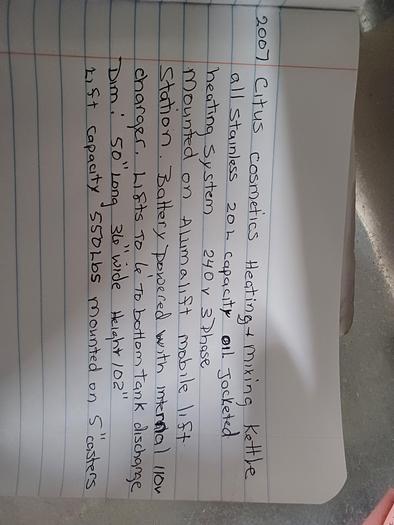 2007 Citus Cosmetics Heating + mixing Kettle
all Stainless 20 L capacity oil Jocketed
heating System 240 v 3 Phase
Mounted on Alumalift mobile lift
Station. Battery powered with internal 110v
charger. Lifts To 6 To bottom tank discharge
Dim: 50" Long 36" wide Height 102"
Lift capacity 550 Lbs mounted on 5" casters